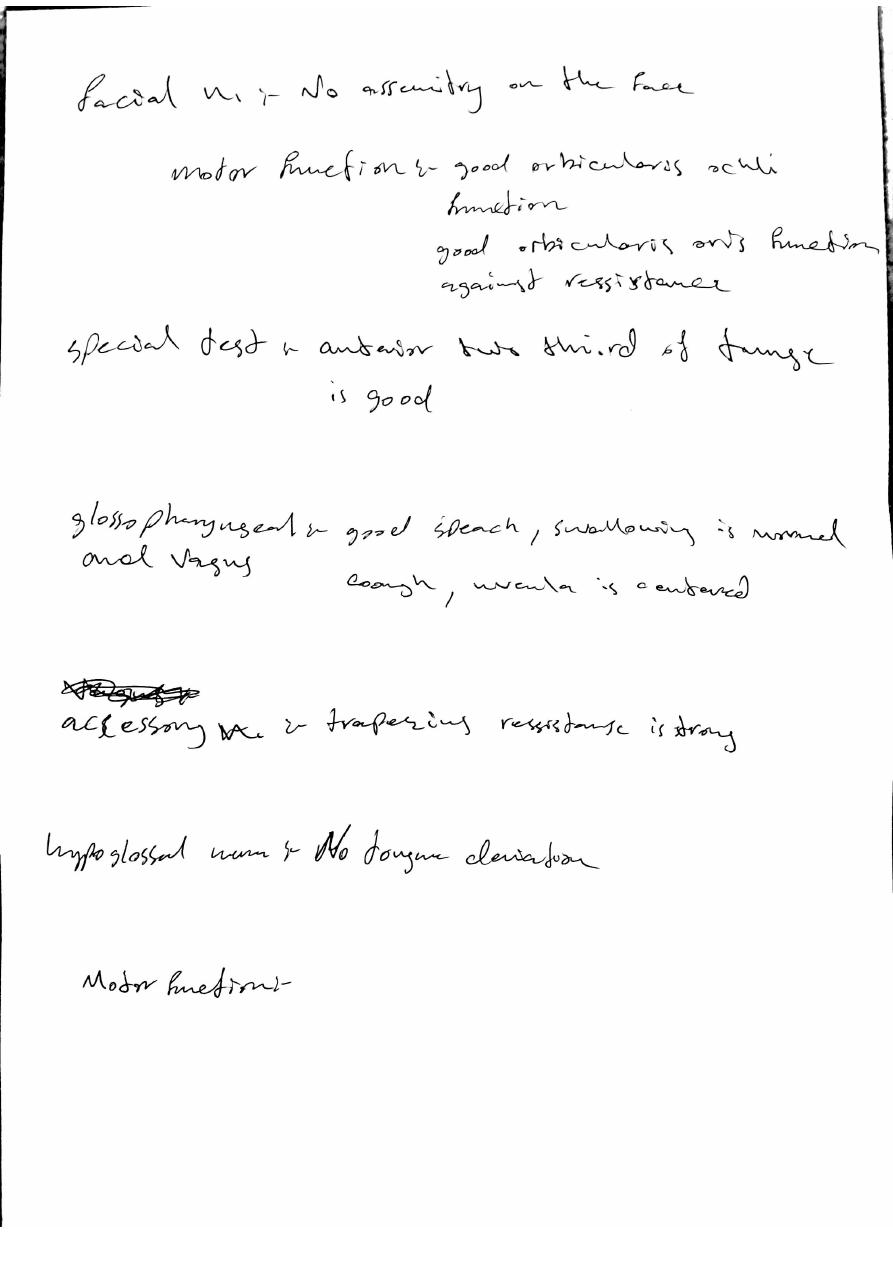 facial n. :- No assemitry on the face
motor function :- good orbicularis oculi
function
good orbicularis oris function
against ressistance
special test :- anterior two third of tounge
is good
glossopharyngeal :- good speach, swallowing is normal
and Vagus
cough, uvula is centered
accessory n. :- trapezius ressistanse is strong
hypoglossal nerve :- No tongue deviation
Motor function :-